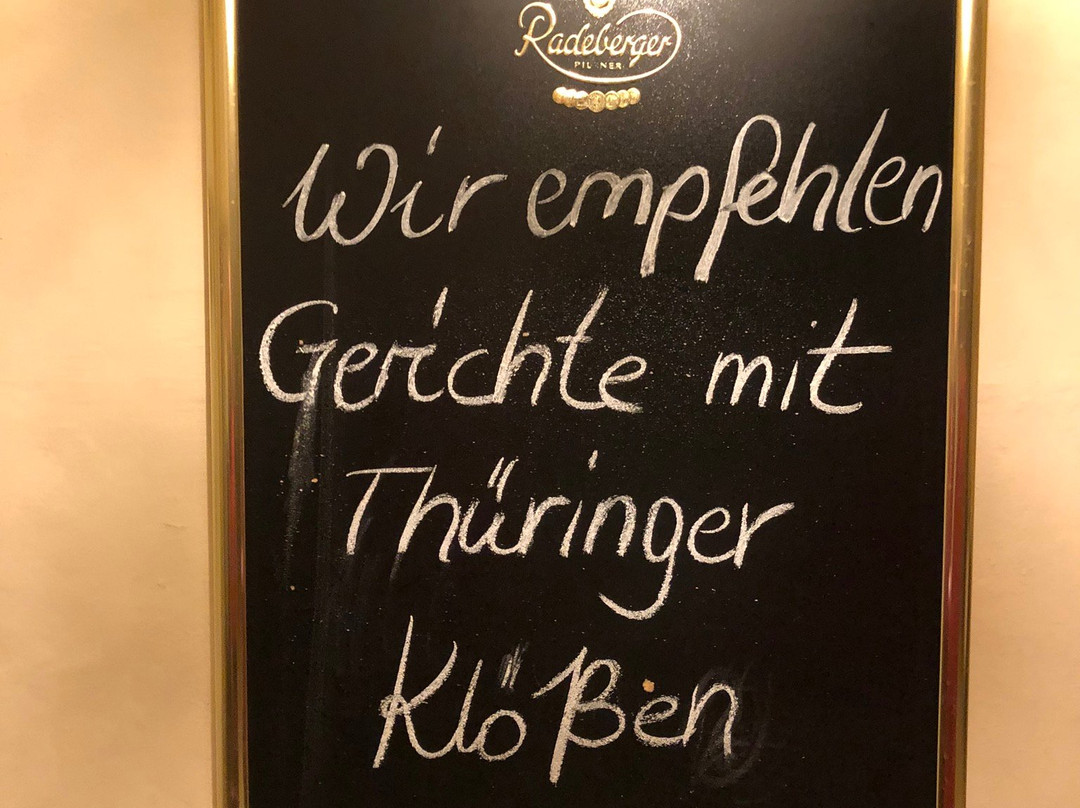 Radeberger
PILSNER
Wir empfehlen
Gerichte mit
Thüringer
Klößen